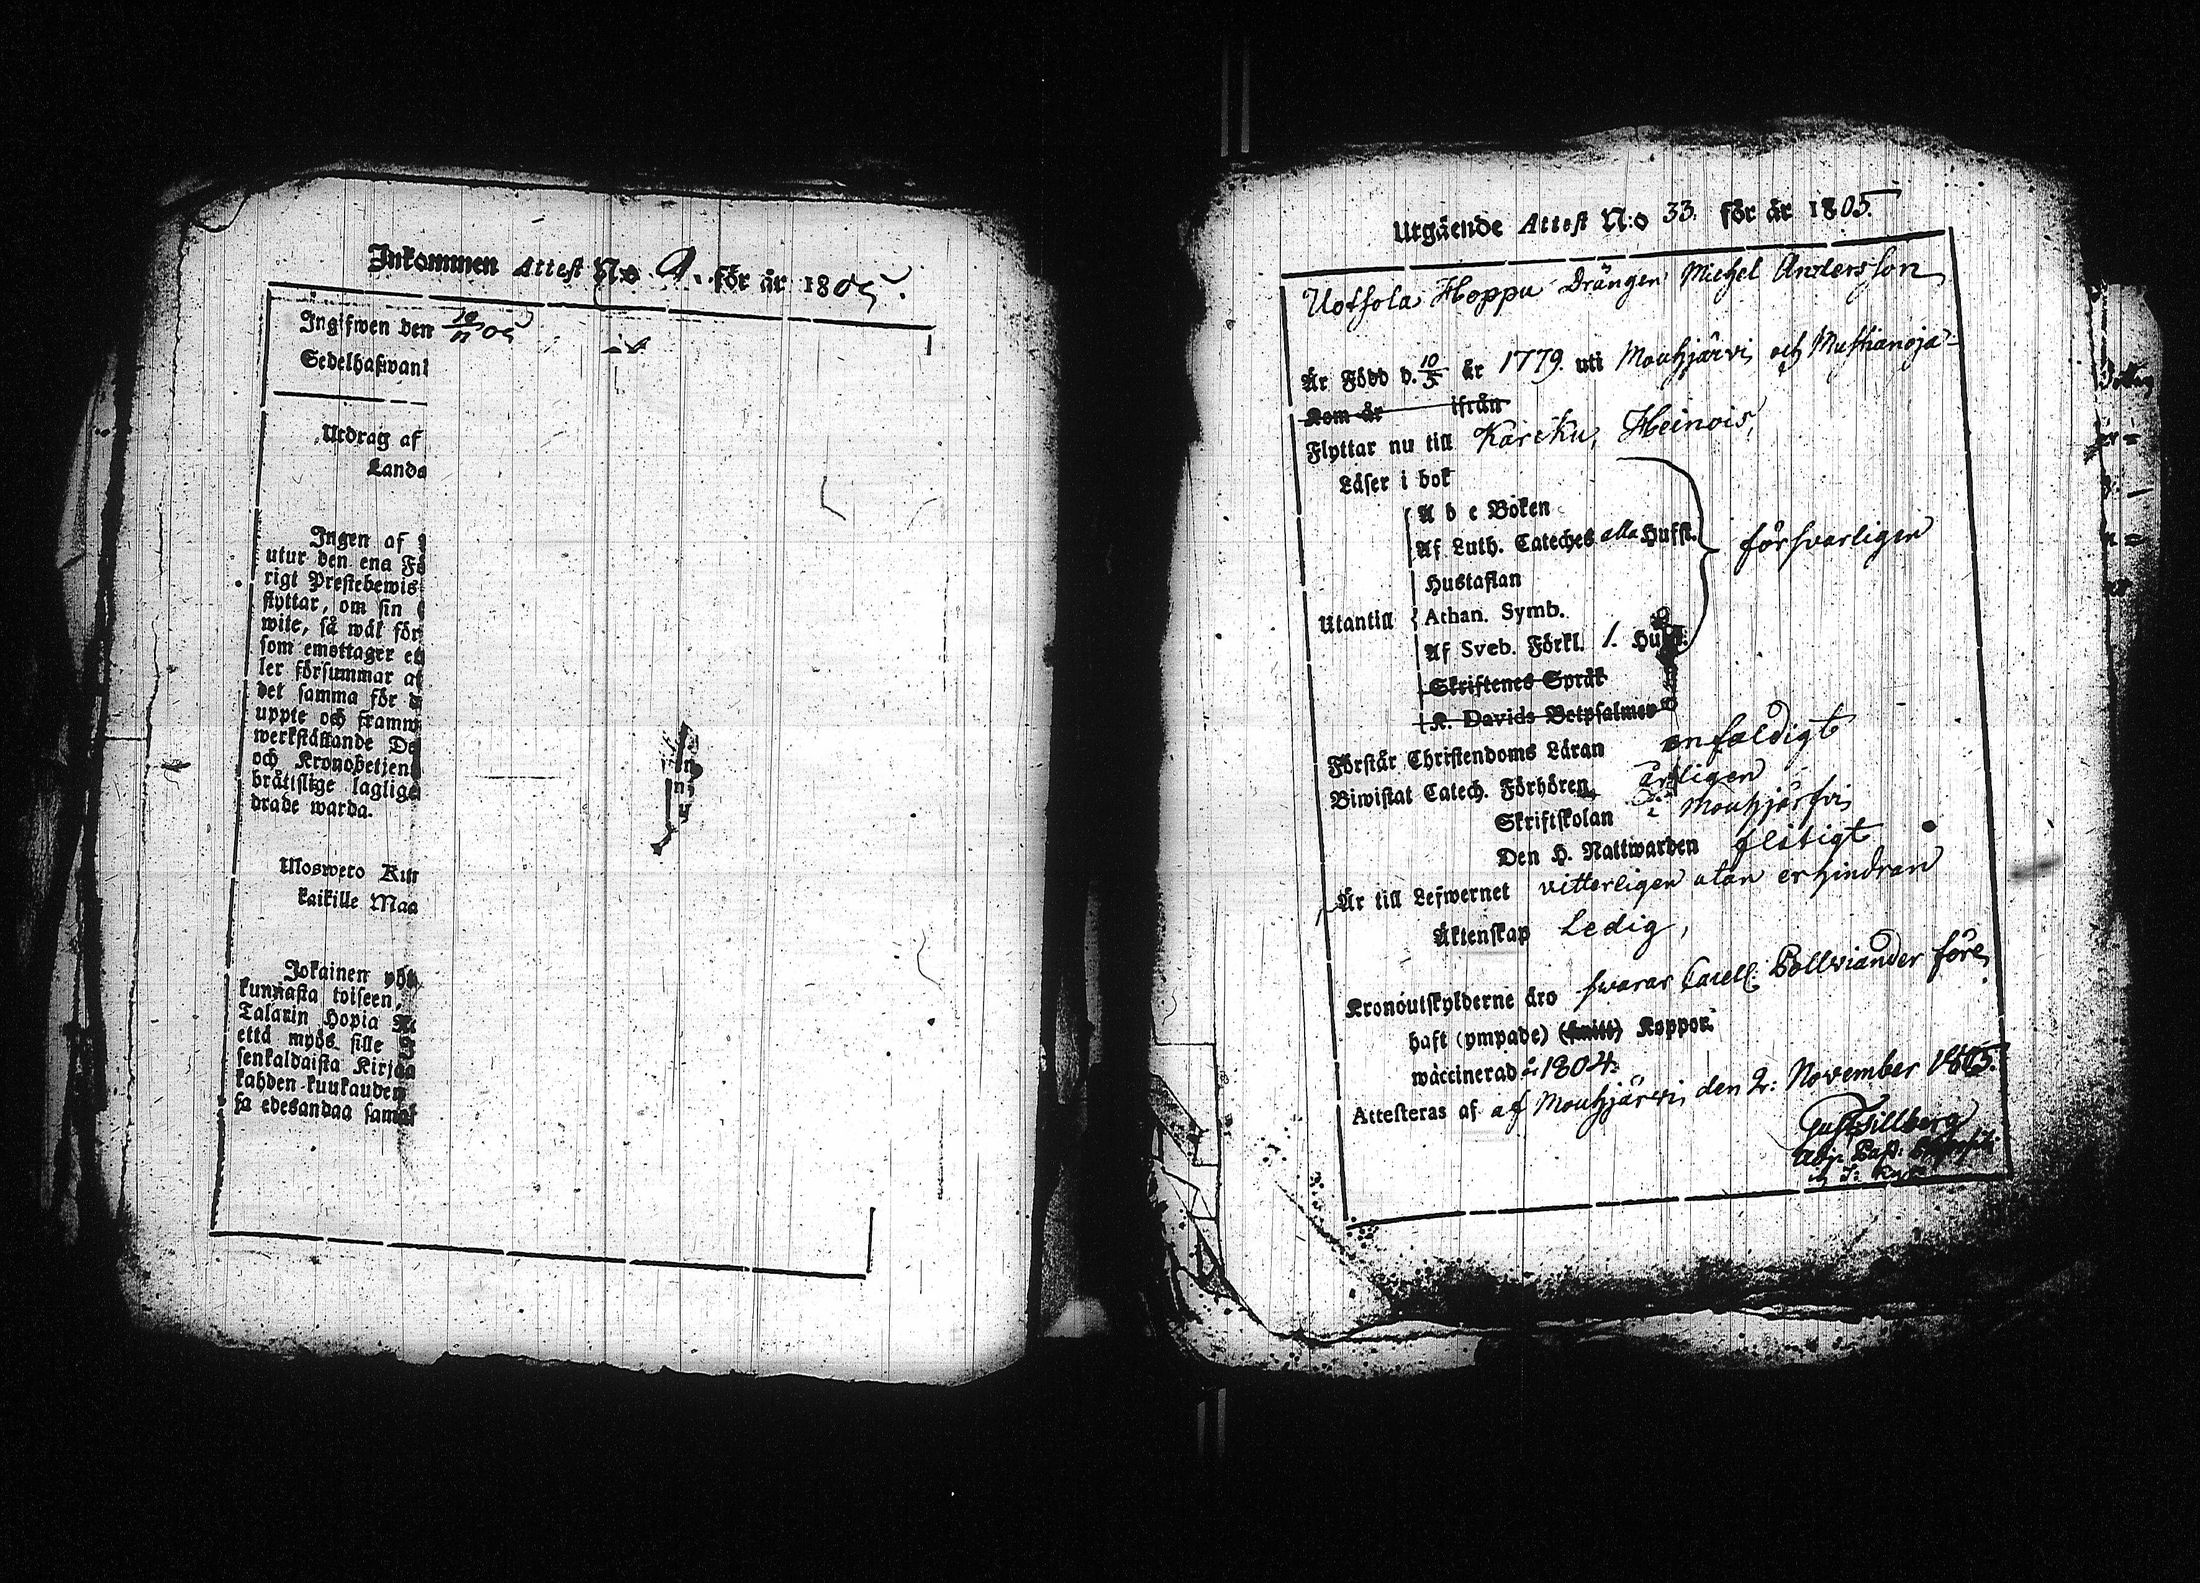 Inkommen Attest N:o 9. för år 1805.
Ingifwen den 10/11 05
Sedelhafwan
Utdrag af
Lands
Ingen af
utur den ena Fö
rigt Prestebewis
flyttar, om sin
wite, så wäl för
som emottager
ler försummar at
det samma för
uppte och framm
werkställande De
och Kronobetjen
brättslige laglige
drade warda.
Ulosweto
kaikille Maa
Jokainen
kunnasta toiseen,
Talarin Hopia
että myös sille
senkaldaista Kirja
kahden kuukauden
sa edesandaa sama
Utgående Attest N:o 33. för år 1805.
Uotsola Hoppu Drängen Michel Andersson
Är Född d. 10/5 år 1779. uti Mouhjärvi och Mustianoja
Kom år ifrån
Flyttar nu till Karcku, Heinois,
Läser i bok
A b c Boken
Af Luth. Cateches alla Hufst.
försvarligen
Hustaflan
Utantill Athan. Symb.
Af Sveb. Förkl. 1. Hufst.
Skriftenes Språk
K. Davids Botpsalmer
Förstår Christendoms Läran enfaldigt
Biwistat Catech. Förhören årligen
Skriftskolan i Mouhjärfvi
Den H. Nattwarden flitigt
Är till Lefwernet vitterligen utan erhindran
Äktenskap Ledig,
Kronoutskylderne äro swarar Capell. Pollviander före
haft (ympade) (smitt) Koppor.
waccinerad år 1804.
Attesteras af af Mouhjärvi den 2: November 1805.
Gust. Tillberg
Adj. Past: